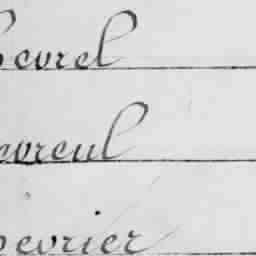 evrel
evreul
evrier